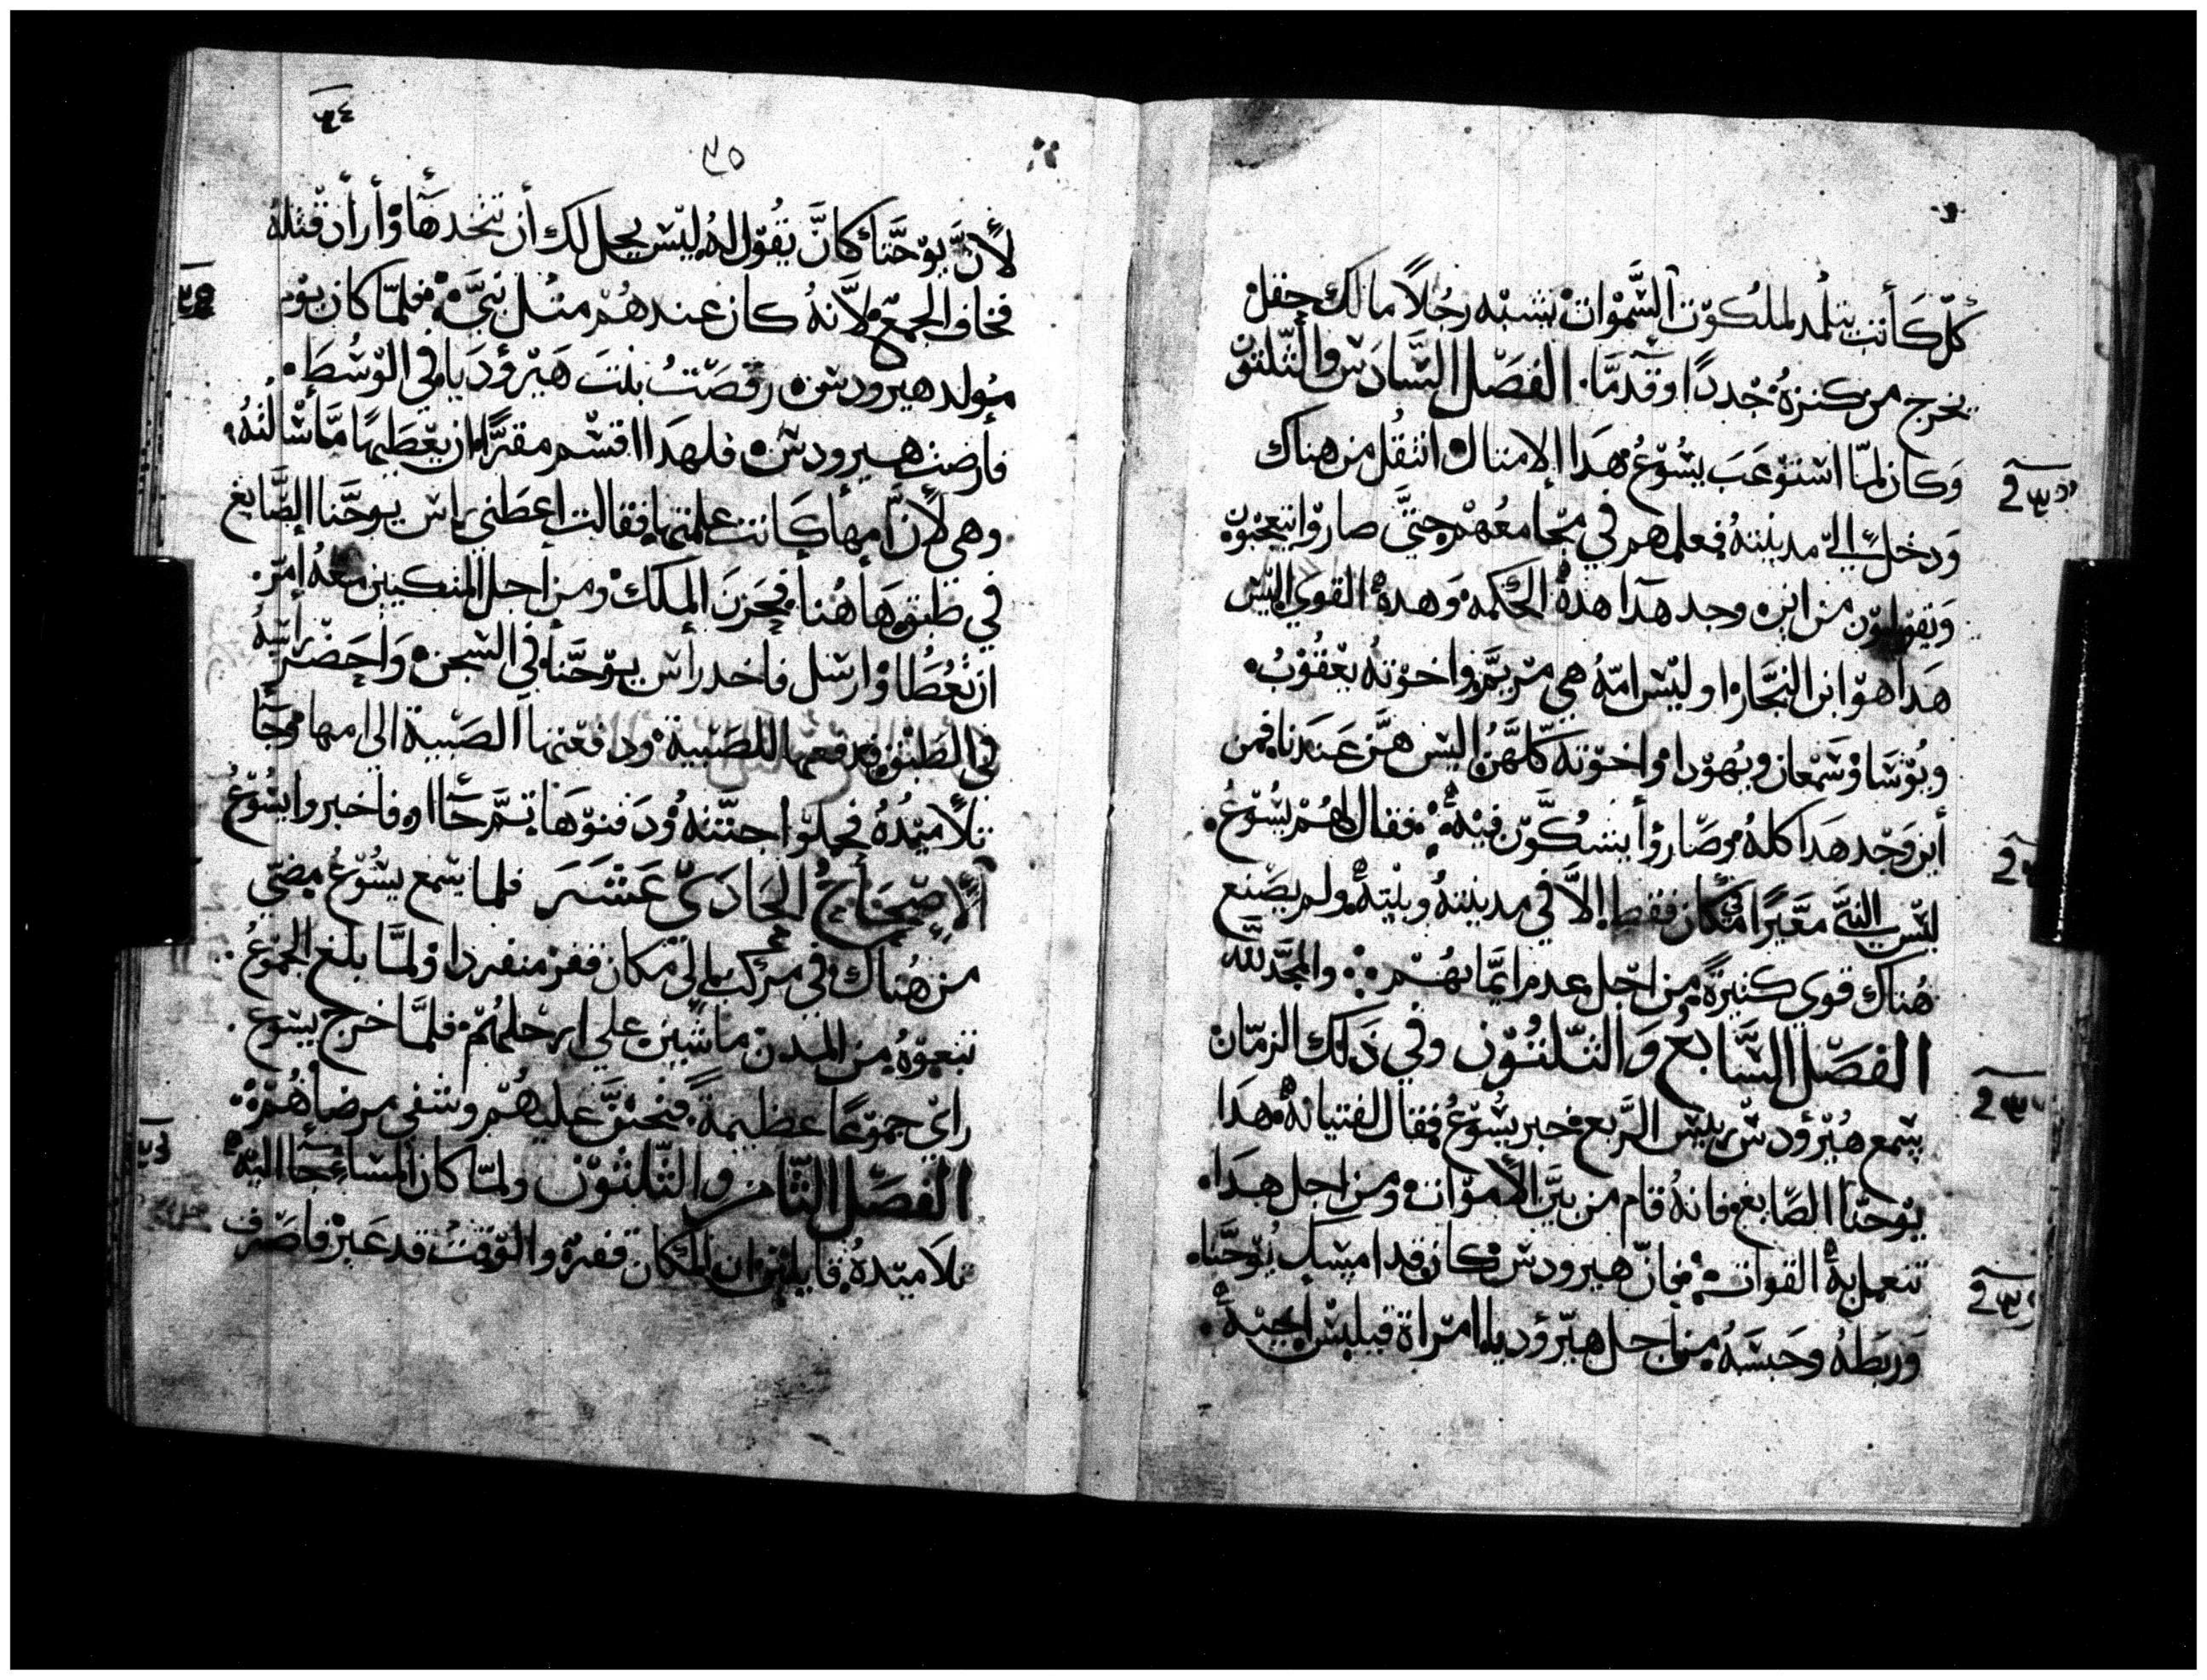 كلّ كاتب يتلمد لملكوت السّموات يشبه رجلاً مالك حفل
يخرج من كنزه جددًا وقدمًا. الفصل السّادس والثلثون
وكان لمّا استوعب يسوع هدا الامتال انتقل من هناك
ودخل الي مدينته فعلمهم في مجامعهم حتّي صاروا يتعجبون
ويقولون من اين وجد هدا هده الحكمه وهده القوي اليس
هدا هو ابن النجّار اوليس امّه هي مريم واخوته يعقوب.
ويوسا وسمعان ويهودا واخوته كلهنّ اليس هن عندنا فمن
أين وجد هدا كله وصاروا يتشكّون فيه فقال لهم يسوع.
ليس النبي مقيرا في مكان فقط إلاّ في مدينته وبيته ولم يصنع
هناك قوي كثيرةً من اجل عدم ايمانهم والمجد لله
الفصل السّابع والثلثون وفي دلك الزمان
سمع هيرودس رييس الرّبع خبر يسوع فقال لفتيانه هدا
يوحنّا الصّابغ فانه قام من بين الأموات ومن اجل هدا.
تعمل به القوات فانّ هيرودس كان قد امسك يوحنّا.
وربطه وحبسه من أجل هيروديا امراة فيلبس اخيه
٣٥
لأنّ يوحنّا كان يقول له ليس يحل لك أن تتخدها وأراد قتله
فخاف الجمع لانّه كان عندهم متل نبيّ فلمّا كان يوم
مولد هيرودس رقصت بنت هيروديا في الوسط.
فأرضت هيرودس فلهدا اقسم مقرًّا ان يعطيها مما سألته
وهي لأنّ أمها كانت علمتها فقالت اعطني راس يوحنّا الصّابغ
في طبق هاهنا فحزن الملك ومن أجل المتكيين معه أمر.
ان تعطا وارسل فاخد رأس يوحنّا في السجن واحضر رأسه
في الطبق فدفعها للصّبية ودفعتها الصّبية الي امها وجا
تلاميده فحملوا جتّته ودفنوها تمّ جااو فاخبروا يسوع
الإصحاح الحادي عشر فلما سمع يسوع مضي
من هناك في مركب الي مكان قفر منفردا ولمّا بلغ الجموع.
تبعوه من المدن ماشيين علي ارجلهم فلمّا خرج يسوع.
راي جموعًا عظيمةً فتحنّن عليهم وشفي مرضاهم
الفصل التّامن والتّلتون ولمّا كان المساء جاا اليه
تلاميده قايلين ان المكان قفر والوقت قد عبر فاصرف